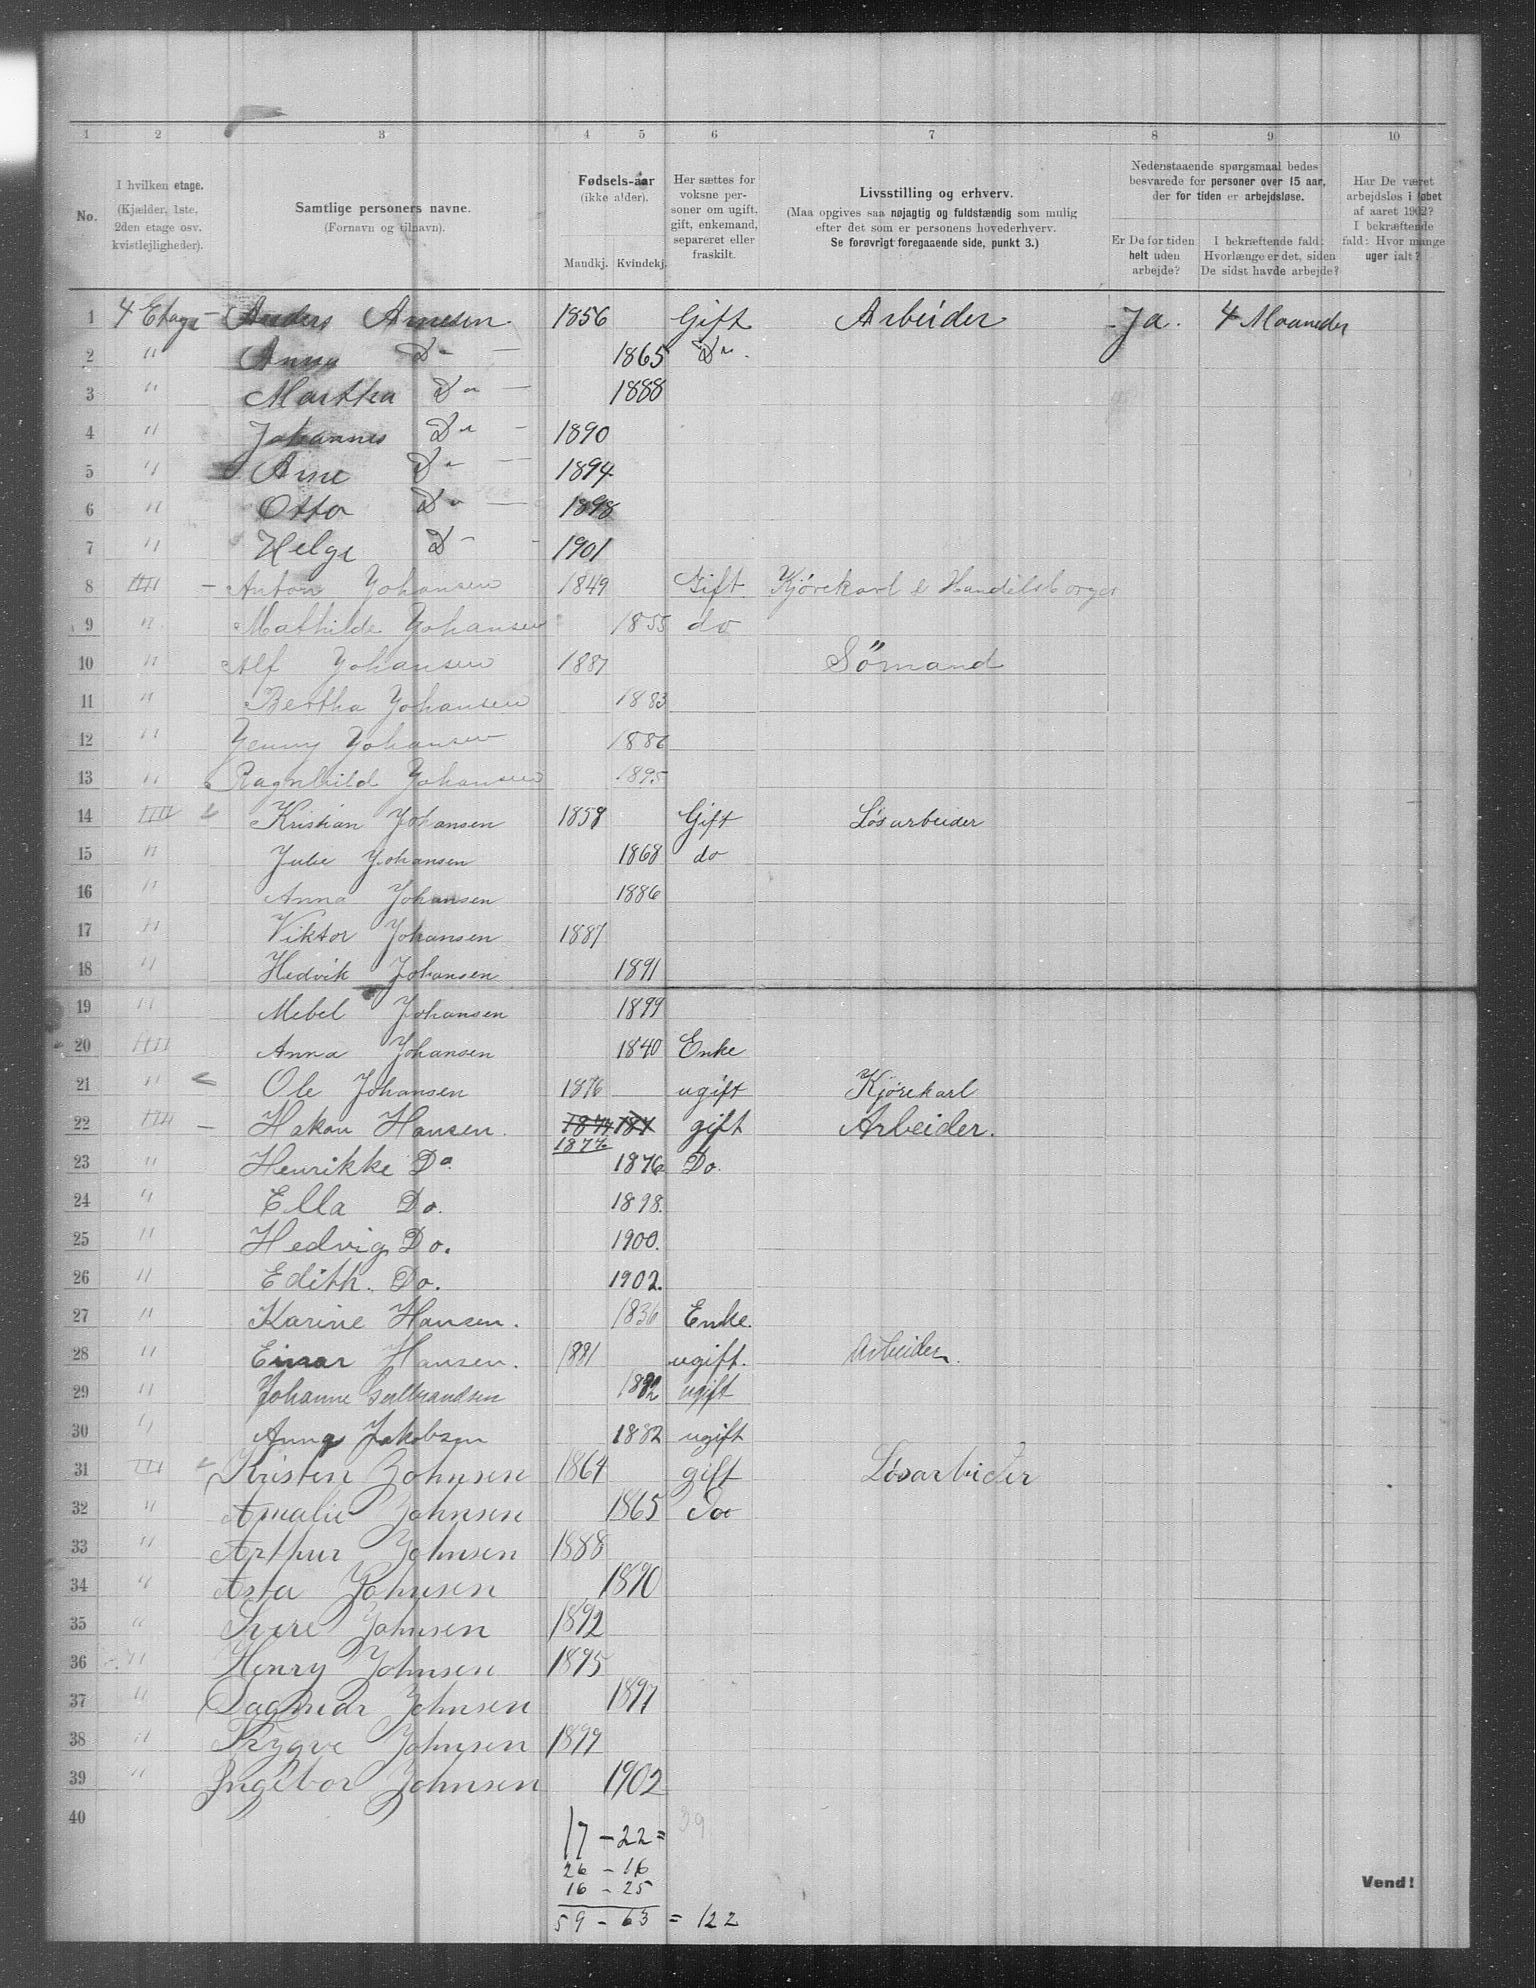 1 2 3 4 5 6 7 8 9 10
No.
I hvilken etage.
(Kjælder, 1ste,
2den etage osv.
kvistlejligheder).
Samtlige personers navne.
(Fornavn og tilnavn).
Fødsels-aar
(ikke alder).
Mandkj. Kvindekj.
Her sættes for
voksne per-
soner om ugift,
gift, enkemand,
separeret eller
fraskilt.
Livsstilling og erhverv.
(Maa opgives saa nøjagtig og fuldstændig som mulig
efter det som er personens hovederhverv.
Se forøvrigt foregaaende side, punkt 3.)
Nedenstaaende spørgsmaal bedes
besvarede for personer over 15 aar,
der for tiden er arbejdsløse.
Er De for tiden
helt uden
arbejde?
I bekræftende fald:
Hvorlænge er det, siden
De sidst havde arbejde?
Har De været
arbejdsløs i løbet
af aaret 1902?
I bekræftende
fald: Hvor mange
uger ialt?
1 4 Etage - Anders Arnesen 1856 Gift Arbeider Ja. 4 Maaneder
2 " Anna Do - 1865 Do.
3 " Martha Do - 1888
4 " Johannes Do - 1890
5 " Arne Do - 1894
6 " Otto Do - 1898
7 " Helge D - - 1901
8 IIII - Anton Johansen 1849 Gift. Kjørekarl & Handelsborger
9 " Mathilde Johansen 1855 do
10 " Alf Johansen 1887 Sømand
11 " Bertha Johansen 1883
12 " Jenny Johansen 1886
13 " Ragnhild Johansen 1895
14 IIII Kristian Johansen 1858 Gift Løsarbeider
15 " Julie Johansen 1868 do
16 " Anna Johansen 1886
17 " Viktor Johansen 1887
18 " Hedvik Johansen 1891
19 " Mebel Johansen 1899
20 IIII Anna Johansen 1840 Enke
21 " Ole Johansen 1876 ugift Kjørekarl
22 IIII - Hakon Hansen. gift Arbeider.
1874
23 " Henrikke Do. 1876 Do.
24 " Ella Do. 1898.
25 " Hedvig Do. 1900.
26 " Edith. Do. 1902.
27 " Karine Hansen. 1836 Enke.
28 " Einar Hansen. 1881 ugift. Arbeider.
29 " Johanne Gulbrandsen 1882 ugift
30 " Anna Jakobsen 1882 ugift
31 IIII Kristen Johnsen 1864 gift Løsarbeider
32 " Amalie Johnsen 1865 Do
33 " Arthur Johnsen 1888
34 " Asta Johnsen 1890
35 " Svere Johnsen 1892
36 " Henry Johnsen 1895
37 " Dagmar Johnsen 1897
38 " Trygve Johnsen 1899
39 " Ingebor Johnsen 1902
40
17 - 22 = 39
26 - 16
16 - 25
59 - 63 = 122
Vend!